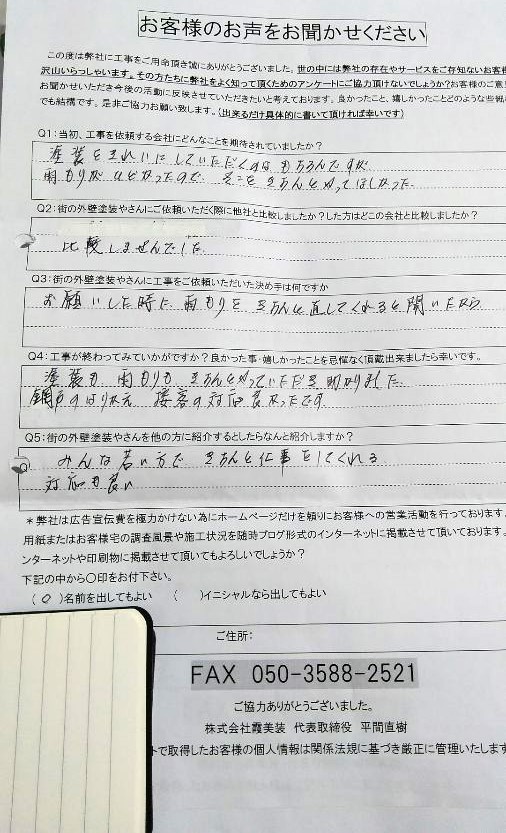 お客様のお声をお聞かせください
この度は弊社に工事をご用命頂き誠にありがとうございました。世の中には弊社の存在やサービスをご存知ないお客様
沢山いらっしゃいます。その方たちに弊社をよく知って頂くためのアンケートにご協力頂けないでしょうか?お客様のご意
お聞かせいただき今後の活動に反映させていただきたいと考えております。良かったこと、嬉しかったことどのような些細
でも結構です。是非ご協力お願い致します。(出来るだけ具体的に書いて頂ければ幸いです)
Q1:当初、工事を依頼する会社にどんなことを期待されていましたか?
塗装をきれいにしていただくのはもちろんですが
雨もりがひどかったので そこをきちんとやってほしかった
Q2:街の外壁塗装やさんにご依頼いただく際に他社と比較しましたか?した方はどこの会社と比較しましたか?
比較しませんでした
Q3:街の外壁塗装やさんに工事をご依頼いただいた決め手は何ですか
お願いした時に 雨もりをきちんと直してくれると聞いたから
Q4:工事が終わってみていかがですか?良かった事・嬉しかったことを忌憚なく頂戴出来ましたら幸いです。
塗装も 雨もりもきちんとやっていただき助かりました
網戸のはりかえ 接客の対応良かったです
Q5:街の外壁塗装やさんを他の方に紹介するとしたらなんと紹介しますか?
みんな若い方で きちんと仕事をしてくれる
対応も良い
*弊社は広告宣伝費を極力かけない為にホームページだけを頼りにお客様への営業活動を行っております。
用紙またはお客様宅の調査風景や施工状況を随時ブログ形式のインターネットに掲載させて頂いております。
ンターネットや印刷物に掲載させて頂いてもよろしいでしょうか?
下記の中から〇印をお付下さい。
(〇)名前を出してもよい ( )イニシャルなら出してもよい
ご住所:
FAX 050-3588-2521
ご協力ありがとうございました。
株式会社霞美装 代表取締役 平間直樹
トで取得したお客様の個人情報は関係法規に基づき厳正に管理いたします